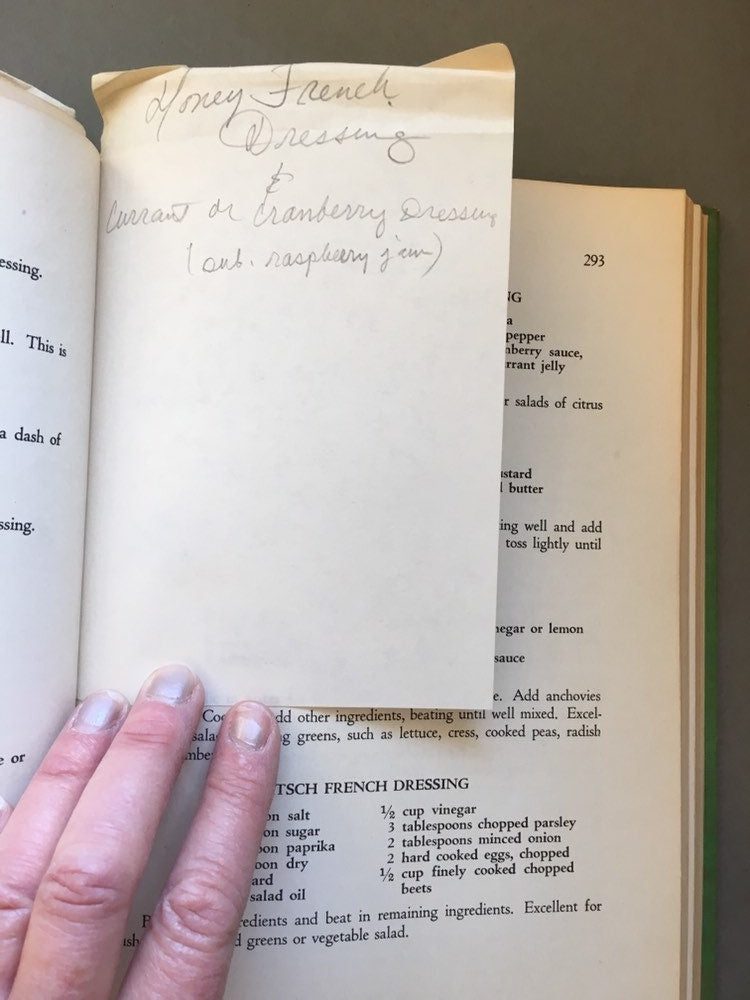 essing.
ll. This is
a dash of
ssing.
e or
Honey French
Dressing
&
Currant or Cranberry Dressing
(sub. raspberry jam)
293
NG
a
pepper
nberry sauce,
rrant jelly
r salads of citrus
ustard
l butter
ing well and add
toss lightly until
negar or lemon
sauce
e. Add anchovies
dd other ingredients, beating until well mixed. Excel-
salad ng greens, such as lettuce, cress, cooked peas, radish
mber
TSCH FRENCH DRESSING
on salt
on sugar
oon paprika
oon dry
ard
salad oil
½ cup vinegar
3 tablespoons chopped parsley
2 tablespoons minced onion
2 hard cooked eggs, chopped
½ cup finely cooked chopped
beets
redients and beat in remaining ingredients. Excellent for
d greens or vegetable salad.